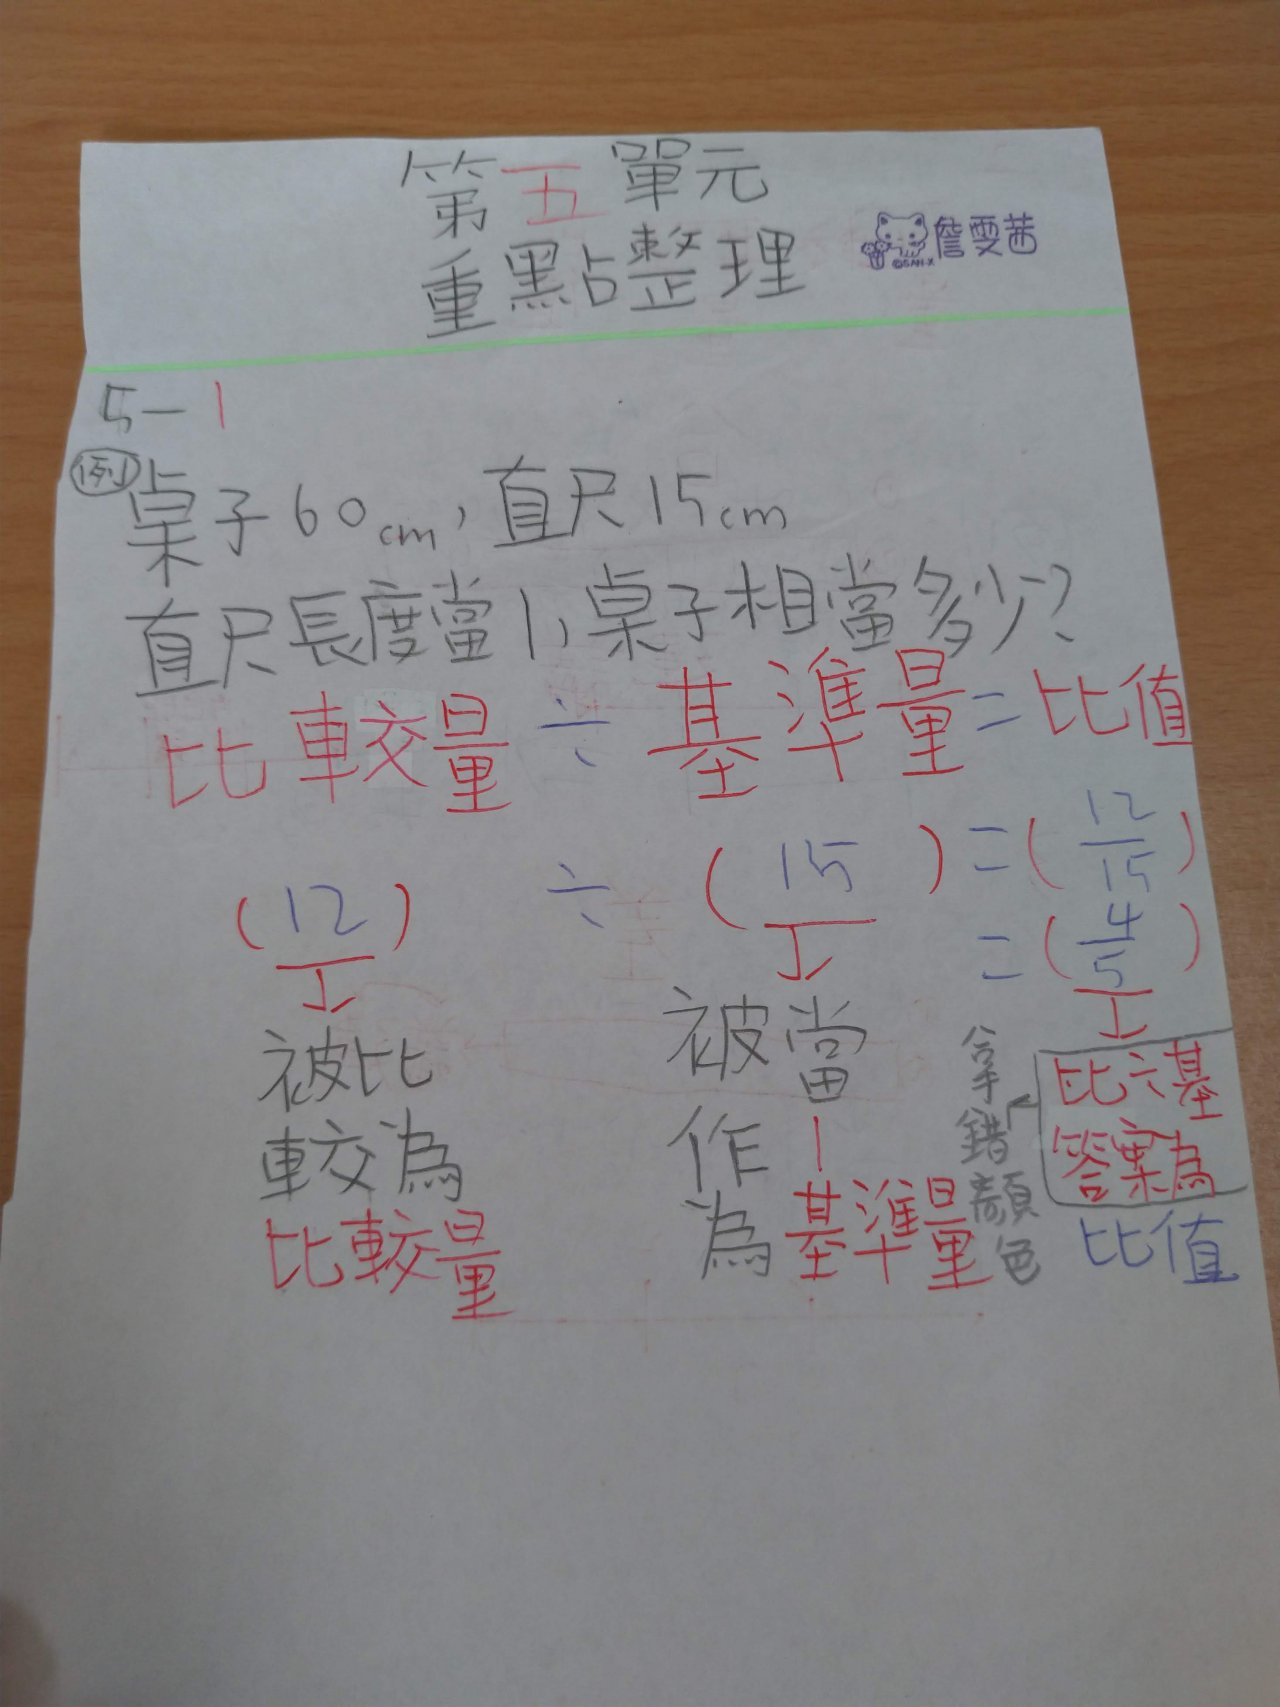 第五單元
重點整理
©SAN-X 詹雯茜
5-1
例 桌子60cm,直尺15cm
直尺長度當1,桌子相當多少?
比較量÷基準量=比值
(12)÷(15)=(12/15)
=(4/5)
被比
較為
比較量
被當
作1
為基準量
拿錯顏色
比÷基
答案為
比值